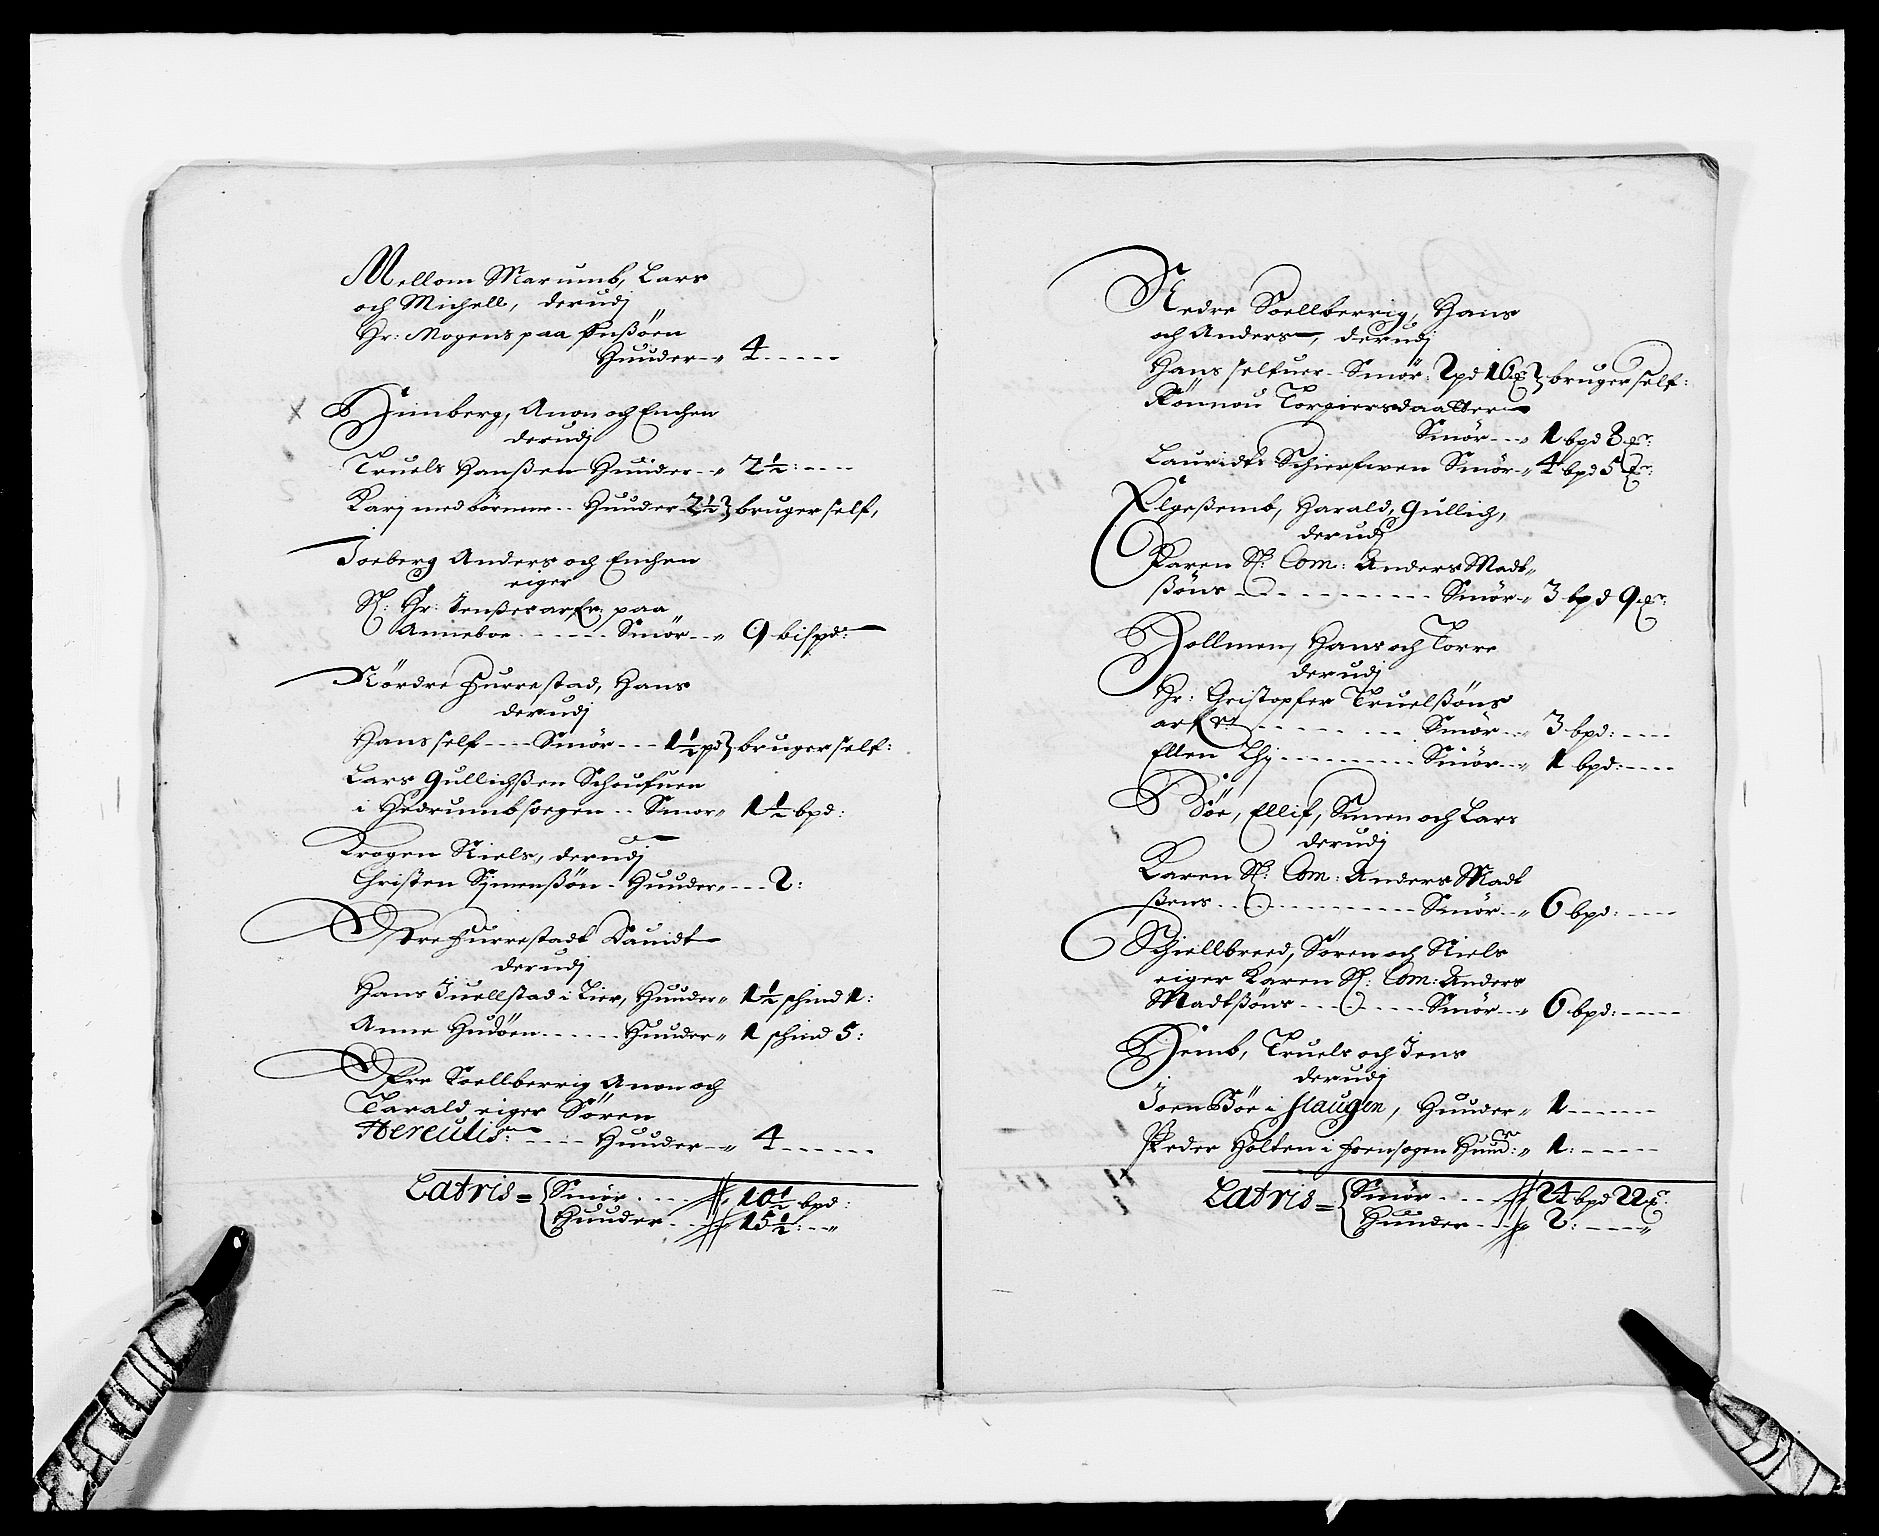 Mellom Marumb, Lars
och Michell, derudj
Hr: Mogens paa
Huuder 4
Himberg, Anon och Enchen
derudj
Truels Hanßen Huuder 2½
Karj med börnene Huuder 2½ bruger self,
Joeberg Anders och Enchen
eiger
Sl: Hr: Jenßes arfr: paa
Anneboe Smör 9 bispd:
Nördre Furrestad, Hans
derudj
Hans self Smör 1½ pd bruger self:
Lars Gullichßen Schoufuen
i Hedrumbsoegen Smör 1½ bpd:
Krogen Niels, derudj
Christen Sÿmenßön Huuder 2:
Øfre Furrestadt Dauidt
derudj
Hans Juellstad i Lier, Huuder 1½ schind 1:
Anne Hudöen Huuder 1 schind 5:
Øfre Soellberrig Anon och
Tarald eiger Sören
Herculis: Huuder 4
Latris = Smör 10½ bpd:
Huuder 15½:
Nedre Soellberrig, Hans
och Anders, derudj
Hans selfuer Smör: 2 pd 16 bruger self:
Rönnou Torgiersdaatter
Smör 1 bpd 8
Lauridts Schierfwen Smör 4 bpd 5
Elgeßemb, Harald, Gullich,
derudj
Karen Sl: Com: Anders Madt
ßöns Smör 3 bpd 9
Hollmen, Hans och Torre
derudj
Hr: Cristopfer Truelßöns
arfr: Smör 3 bpd:
Ellen Smör 1 bpd:
Böe, Ellif, Simen och Lars
derudj
Karen Sl: Com: Anders Madt
ßens Smör 6 bpd:
Schiellbreed, Sören och Niels
eiger Karen Sl: Com: Anders
Madtßöns Smör 6 bpd:
Hemb, Truels och Jens
derudj
Joen Böe i Slaugen, Huuder 1
Peder Holten i Huud: 1:
Latris = Smör 24 bpd 22
Huuder 2: